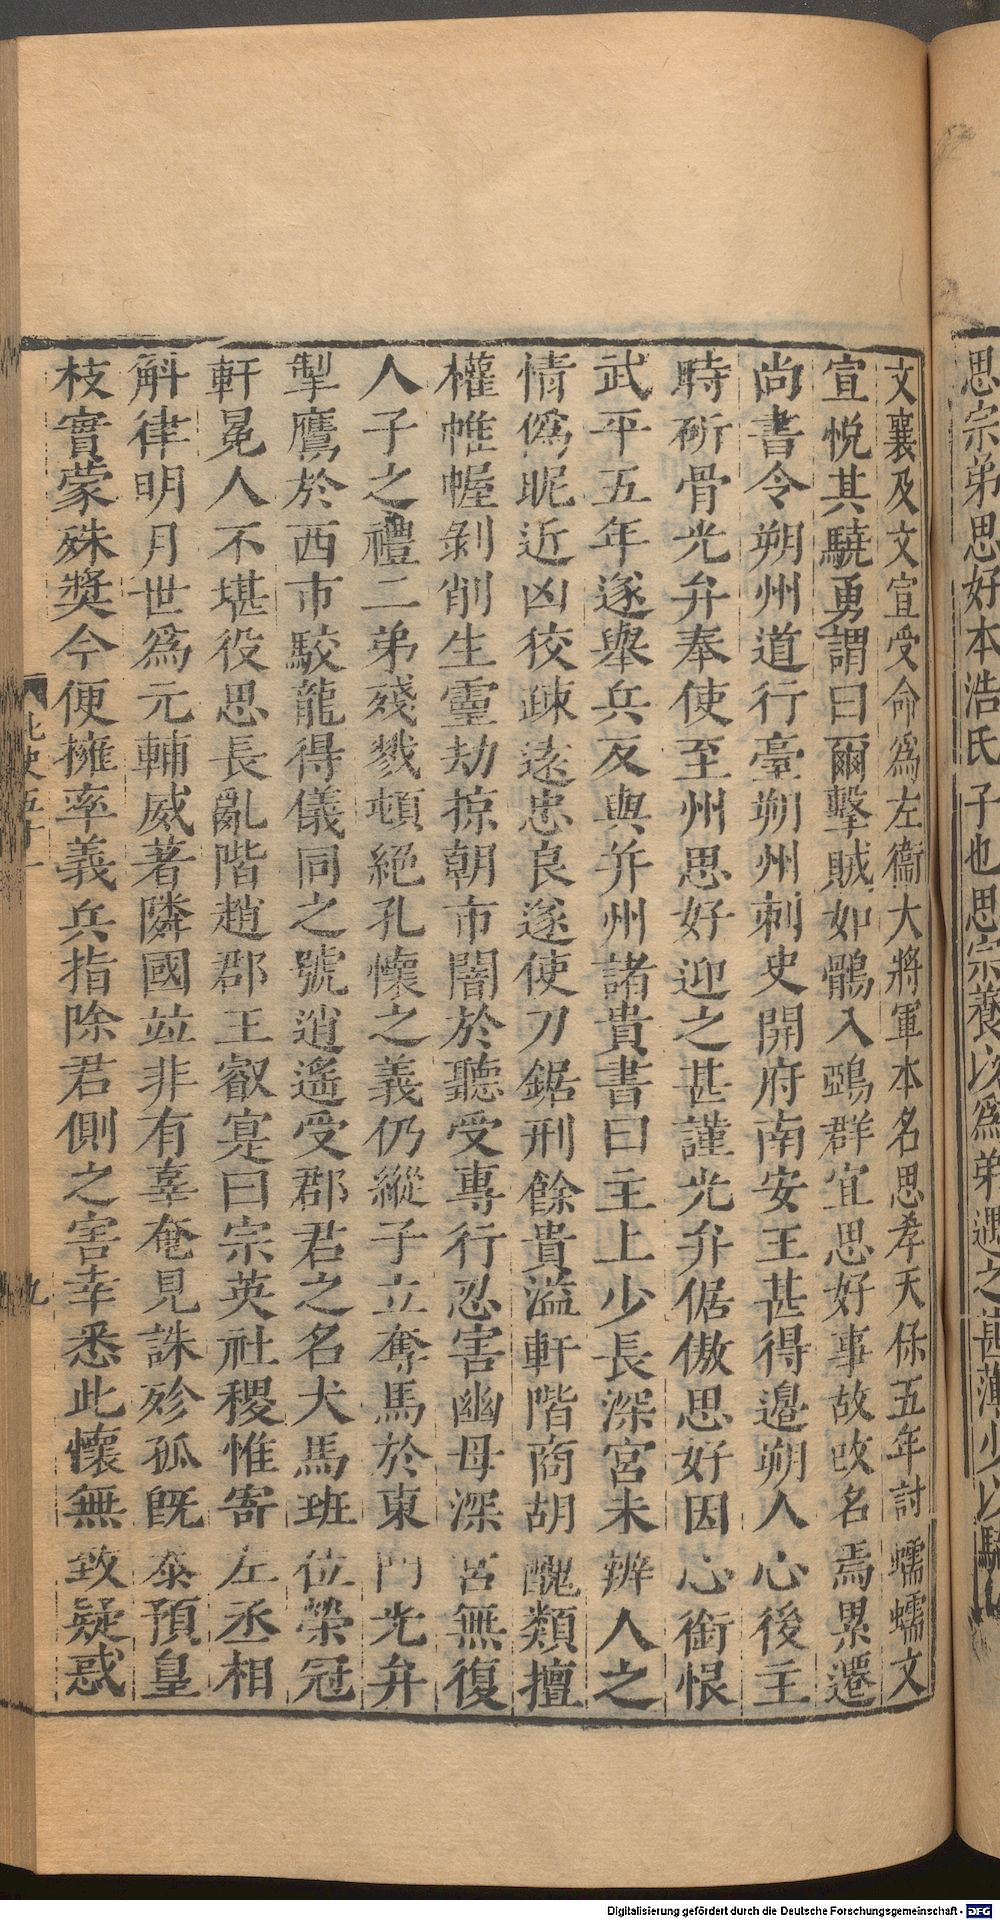 思宗弟思好本浩氏子也思宗養以爲弟遇之甚薄少以騎
文襄及文宣受命爲左衞大將軍本名思孝天保五年討蠕蠕文
宣悅其驍勇謂曰爾擊賊如鶻入鵶群宜思好事故改名焉累遷
尚書令朔州道行臺朔州刺史開府南安王甚得邉朔人心後主
時斫骨光弁奉使至州思好迎之甚謹光弁倨傲思好因心銜恨
武平五年遂舉兵反與并州諸貴書曰主上少長深宮未辨人之
情僞昵近凶狡踈遠忠良遂使刀鋸刑餘貴溢軒階商胡醜類擅
權帷幄剝削生靈劫掠朝市闇於聽受專行忍害幽母深宮無復
人子之禮二弟殘戮頓絕孔懷之義仍縱子立奪馬於東門光弁
掣鷹於西市駮龍得儀同之號逍遙受郡君之名犬馬班位榮冠
軒冕人不堪役思長亂階趙郡王叡寔曰宗英社稷惟寄左丞相
斛律明月世爲元輔威著隣國竝非有辜奄見誅殄孤旣忝預皇
枝實蒙殊獎今便擁率義兵指除君側之害幸悉此懷無致疑惑
北史五十一
九
Digitalisierung gefördert durch die Deutsche Forschungsgemeinschaft - DFG